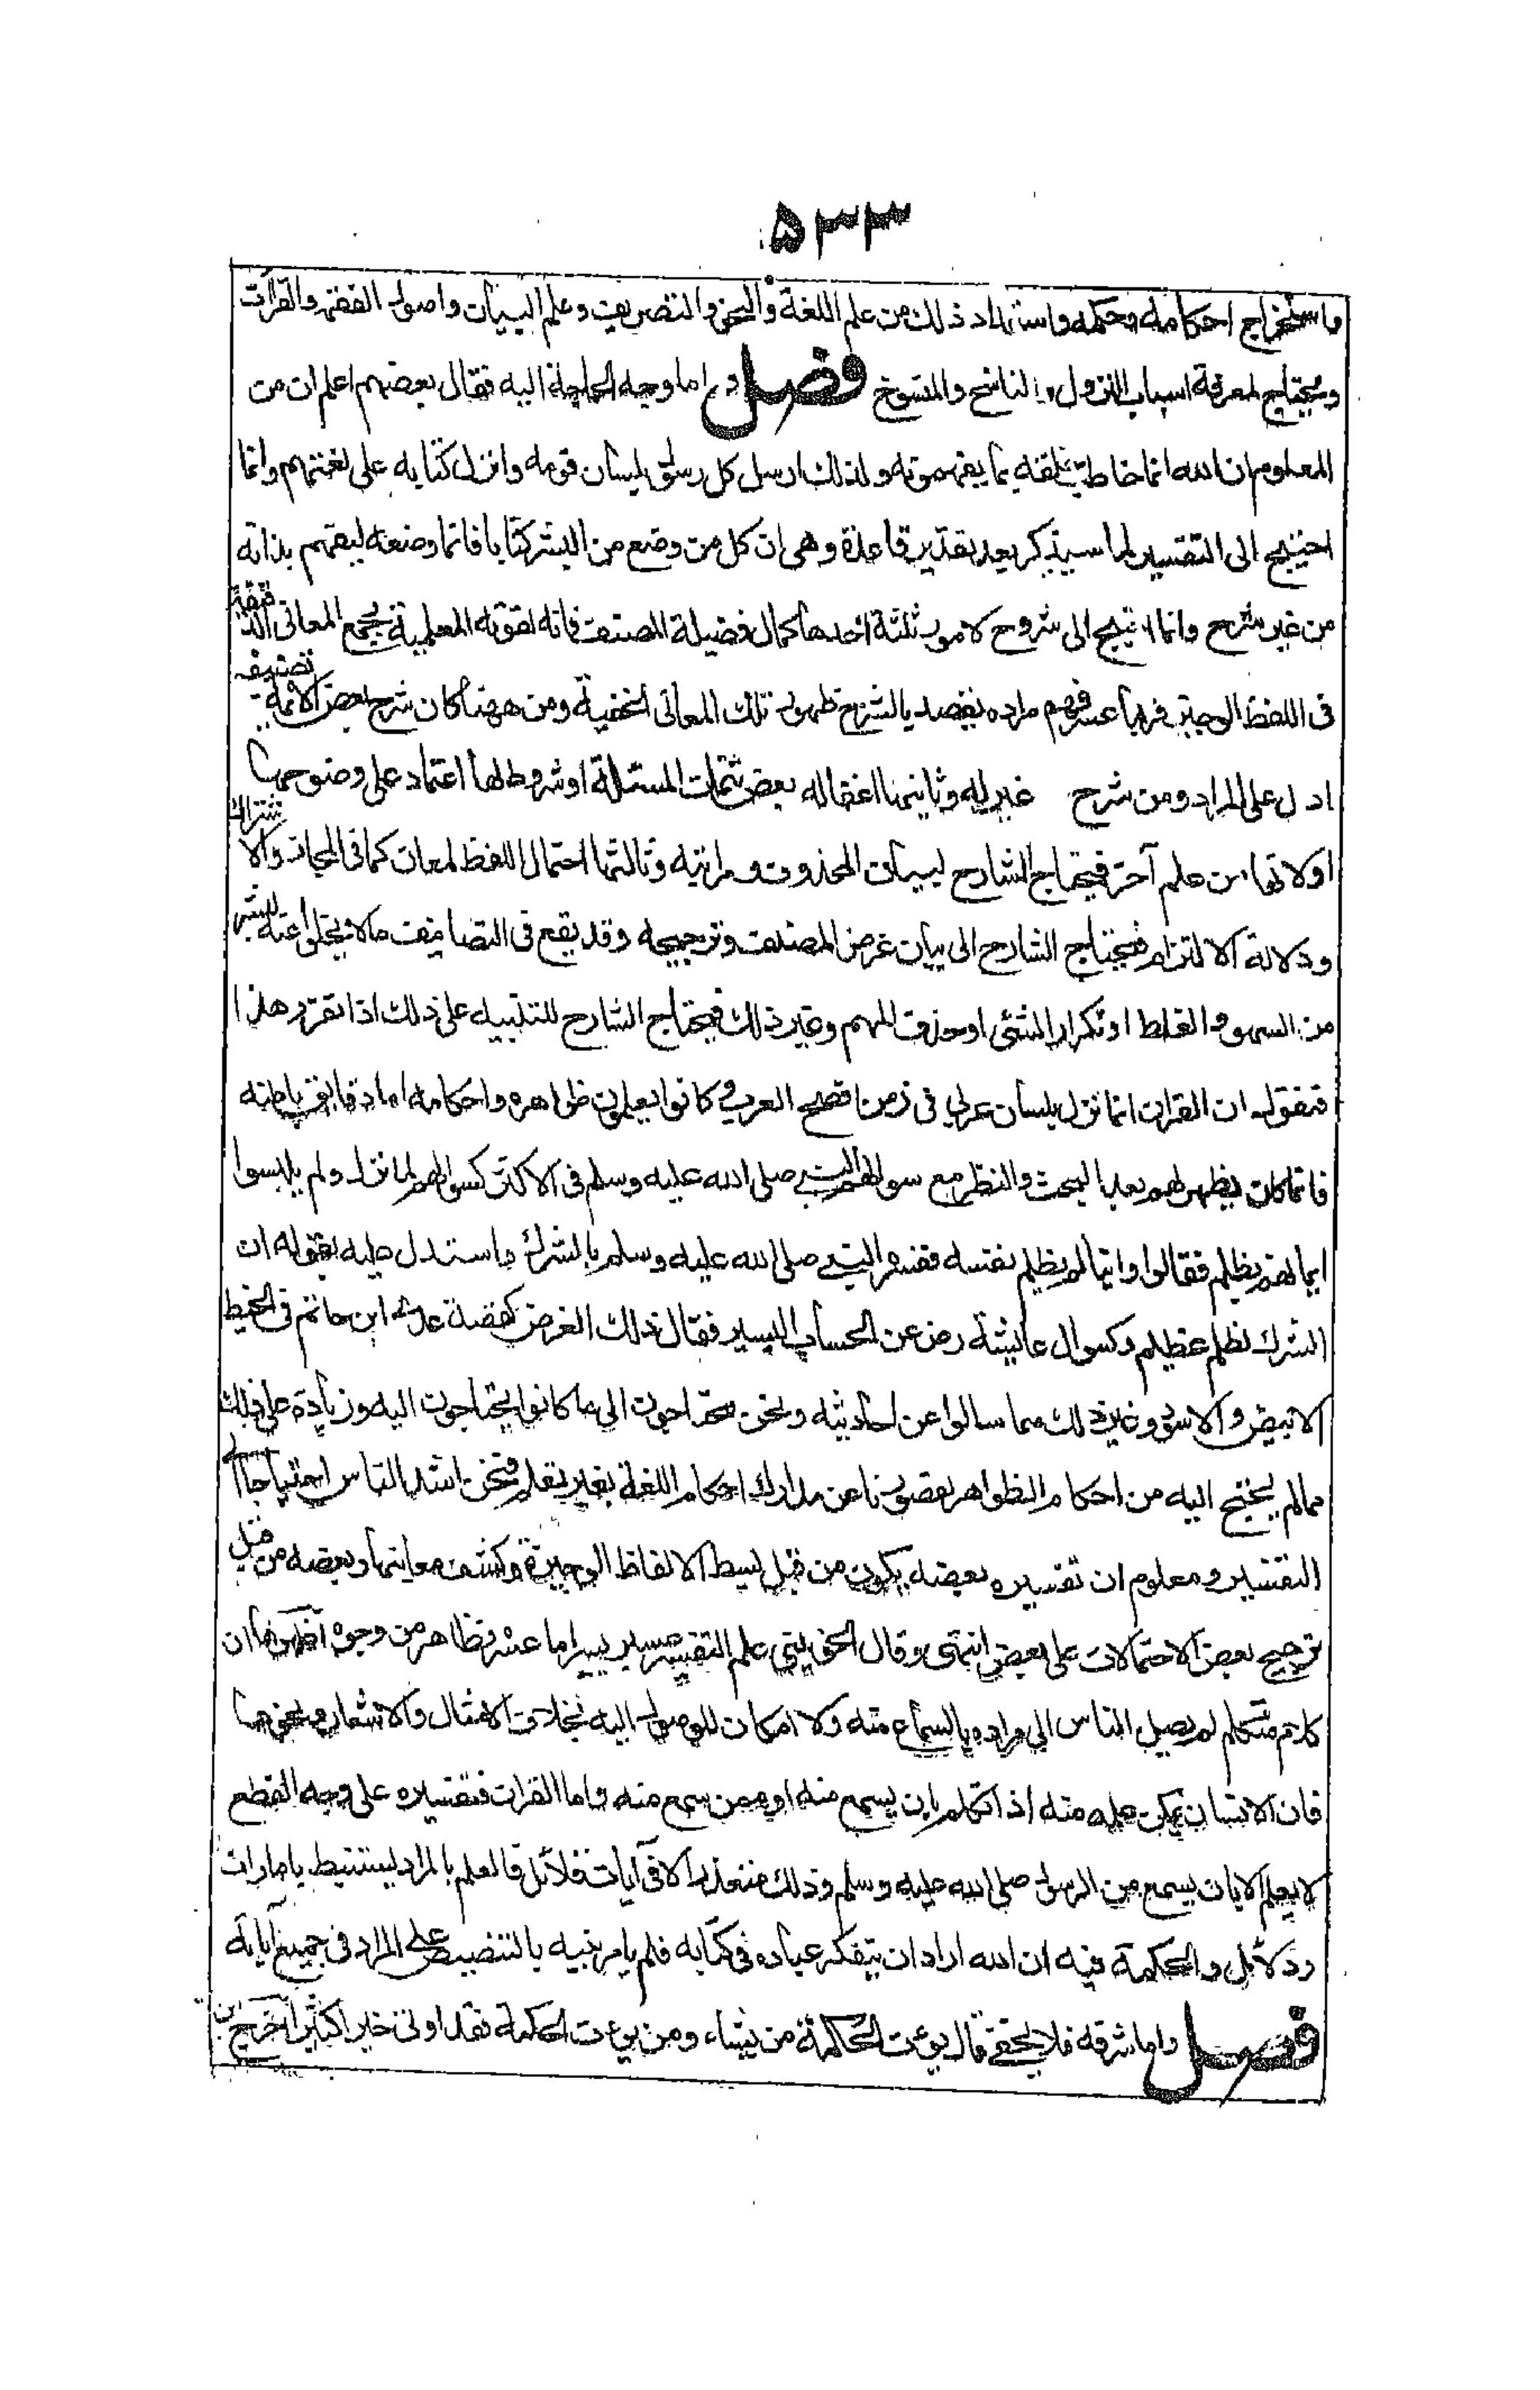 ۵۳۳
واستخراج احكامه وحكمه واستمداد ذلك من علم اللغة والنحو والتصريف وعلم البيان واصول الفقه والقرأت
ويحتاج لمعرفة اسباب النزول والناسخ والمنسوخ فصل واما وجه الحاجة اليه فقال بعضهم اعلم ان من
المعلوم ان الله انما خاطب خلقه بما يفهمونه ولذلك ارسل كل رسول بلسان قومه وانزل كتابه على لغتهم وانما
احتيج الى التفسير لما سيذكر بعد تقدير قاعدة وهى ان كل من وضع من البشر كتابا فانما وضعه ليفهم بذاته
من غير شرح وانما احتيج الى شروح لامور ثلثة احدها كمال فضيلة المصنف فانه لقوته العلمية يجمع المعانى الدقيقة
فى اللفظ الوجيز فربما عسر فهم مراده فقصد بالشرح ظهور تلك المعانى الخفية ومن ههنا كان شرح بعض الائمة تصنيفه
ادل على المراد ومن شرح غيره له وثانيها اغفاله بعض تتمات المسئلة او شروط لها اعتماد على وضوحها
او لانها من علم آخر فيحتاج الشارح لبيان المحذوف ومراتبه وثالثها احتمال اللفظ لمعان كما فى المجاز والاشتراك
ودلالة الالتزام فيحتاج الشارح الى بيان غرض المصنف وترجيحه وقد يقع فى التصانيف ما لا يخلوا عنه البشر
من السهو والغلط او تكرار الشئى او حذف المهم وغير ذلك فيحتاج الشارح للتنبيه على ذلك اذا تقرر هذا
فنقول ان القران انما نزل بلسان عربى فى زمن افصح العرب وكانوا يعلمون ظواهره واحكامه اما دقايق باطنه
فانما كان يظهر لهم بعد البحث والنظر مع سوالهم النبى صلى الله عليه وسلم فى الاكثر كسوالهم لما نزل ولم يلبسوا
ايمانهم بظلم فقالوا واينا لم يظلم نفسه ففسره النبى صلى الله عليه وسلم بالشرك واستدل عليه بقوله ان
الشرك لظلم عظيم وكسوال عايشة رض عن الحساب اليسير فقال ذلك العرض كقصة عدى ابن حاتم فى الخيط
الابيض والاسود وغير ذلك مما سالوا عن احاديثه ونحن محتاجون الى ما كانوا يحتاجون اليه وزيادة على ذلك
مما لم يحتج اليه من احكام الظواهر لقصورنا عن مدارك احكام اللغة بغير تعلم فنحن اشد الناس احتياجا الى
التفسير ومعلوم ان تفسيره بعضه يكون من قبل بسط الالفاظ الوجيزة وكشف معانيها وبعضه من قبل
ترجيح بعض الاحتمالات على بعض انتهى وقال الخويى علم التفسير عسير يسير اما عسره فظاهر من وجوه اظهرها ان
كلام متكلم لم يصل الناس الى مراده بالسماع منه ولا امكان للوصول اليه بخلاف الامثال والاشعار ونحوها
فان الانسان يمكن علمه منه اذا تكلم بان يسمع منه او ممن سمع منه واما القران فتفسيره على وجه القطع
لا يعلم الا بان يسمع من الرسول صلى الله عليه وسلم وذلك متعذر الا فى آيات قلائل فالعلم بالمراد يستنبط بامارات
ودلائل والحكمة فيه ان الله اراد ان يتفكر عباده فى كتابه فلم يامر نبيه بالتنصيص على المراد فى جميع آياته
فصل واما شرفه فلا يخفى قال يوءت الحكمة من يشاء ومن يوءت الحكمة فقد اوتى خيرا كثيرا اخرج ابن